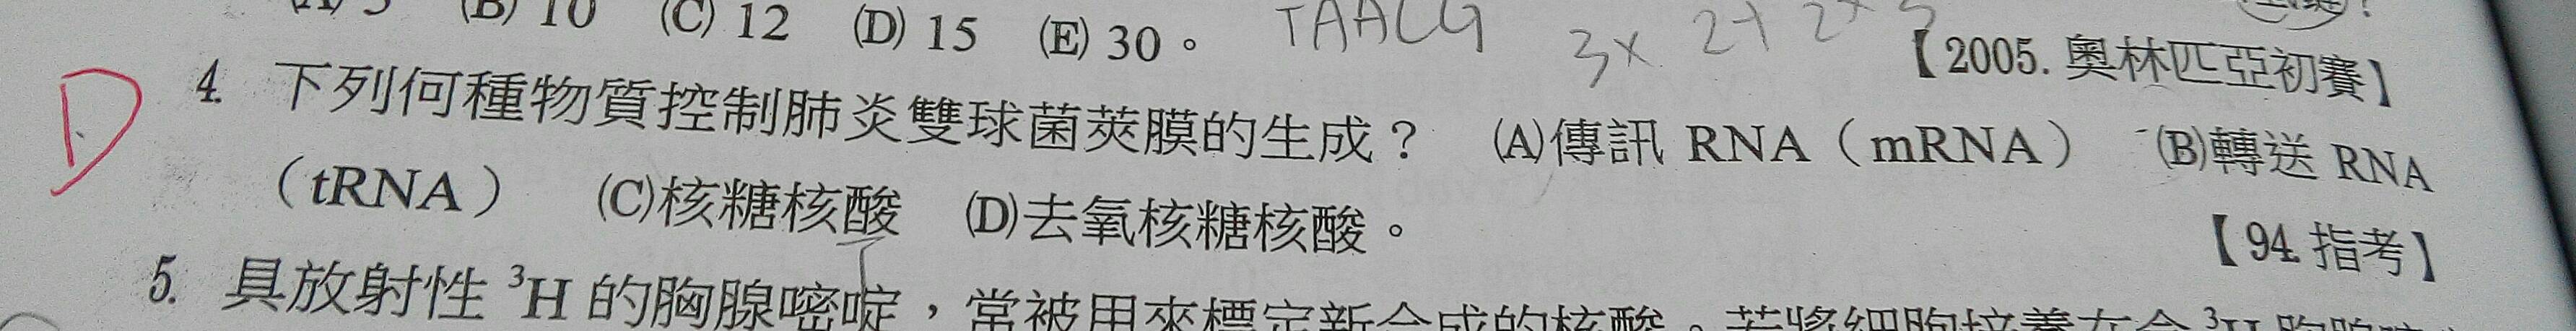 (B) 10 (C) 12 (D) 15 (E) 30。 TAACG 3× 2+ 2×
【2005. 奧林匹亞初賽】
D 4. 下列何種物質控制肺炎雙球菌莢膜的生成？ (A)傳訊 RNA（mRNA） (B)轉送 RNA
（tRNA） (C)核糖核酸 (D)去氧核糖核酸。
【94.指考】
5. 具放射性 ³H 的胸腺嘧啶，常被用來標定新合成的核酸。若將細胞培養在含 ³H 胸腺